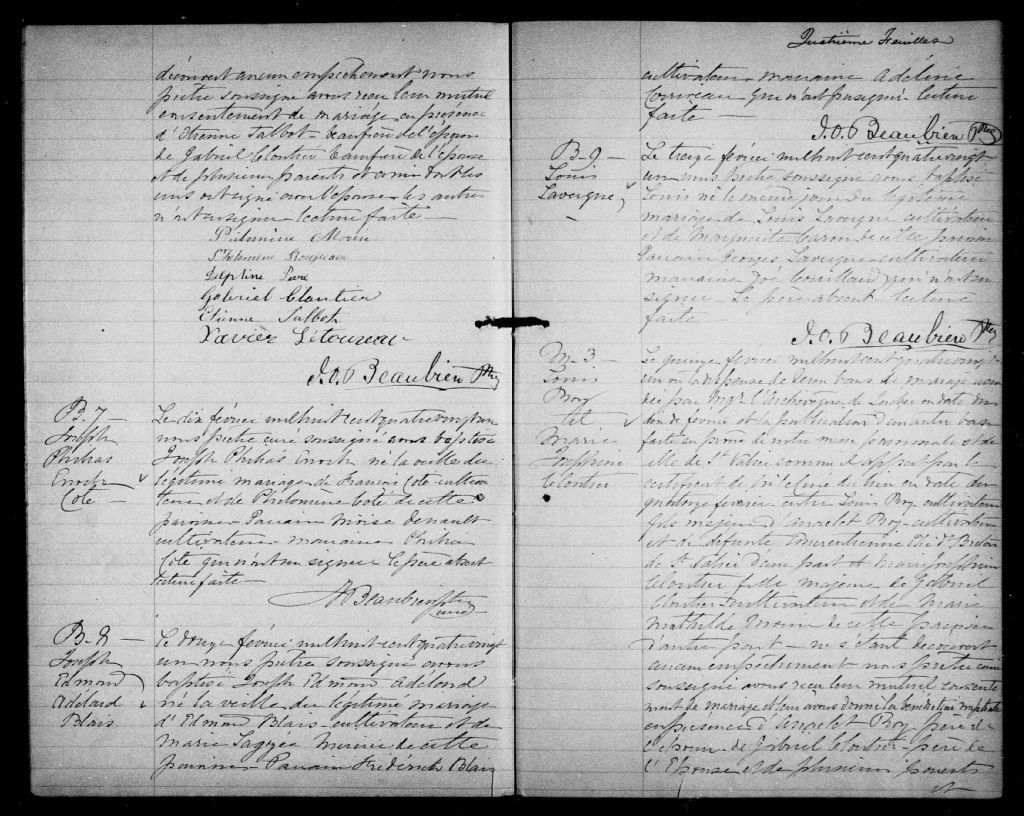 découvert aucun empêchement nous
prêtre soussigné avons reçu leur mutuel
consentement de mariage en présence
d'Etienne Talbot beaufrère de l'époux
de Gabriel Cloutier beaufrère de l'épouse
et de plusieurs parents et amis dont les
uns ont signé avec l'épouse les autres
n'ont su signer. Lecture faite —
Philomène Morin
Philomène Rousseau
Delphine
Gabriel Cloutier
Etienne Talbot
Xavier Létourneau
J.O. Beaubien Ptre
B. 7 —
Joseph
Philias
Enoch
Côté —
Le dix février mil huit cent quatre vingt un
nous prêtre curé soussigné avons baptisé
Joseph Philias Enoch né la veille du
légitime mariage de François Côté cultiva
teur et de Philomène Côté de cette
paroisse — Parrain Moïse
cultivateur marraine
Côté qui n'ont su signer le père absent
lecture faite —
Beaubien Ptre
curé
B. 8 —
Joseph
Edmond
Adélard
Blais
Le douze février mil huit cent quatre vingt
un nous prêtre soussigné avons
baptisé Joseph Edmond Adélard
né la veille du légitime mariage
d'Edmond Blais cultivateur et de
Marie Mercier de cette
paroisse — Parrain Frédérick Blais
Quatrième Feuillet
cultivateur marraine Adéline
qui n'ont pu signer lecture
faite —
J.O. Beaubien Ptre
B. 9 —
Louis
Lavergne
Le treize février mil huit cent quatre vingt
un nous prêtre soussigné avons baptisé
Louis né le même jour du légitime
mariage de Louis Lavergne cultivateur
et de Marguerite Caron de cette paroisse
Parrain Georges Lavergne cultivateur
marraine Couillard qui n'ont su
signer — Le père absent lecture
faite —
J.O. Beaubien Ptre
M. 3 —
Louis
Roy
et
Marie
Joséphine
Cloutier
Le quinze février mil huit cent quatre vingt
un vu la dispense de deux bans de mariage accor
dée par Mgr l'Archevêque de Québec en date du
de février et la publication d'un autre ban
faite au prône de notre messe paroissiale et de
celle de St Valier comme il appert par le
certificat de du lieu en date du
quatorze février entre Louis Roy cultivateur
fils majeur d'Anaclet Roy cultivateur
et de défunte
de St Valier d'une part et Marie Joséphine
Cloutier fille majeure de Gabriel
Cloutier cultivateur et de Marie
Mathilde de cette paroisse
d'autre part — ne s'étant découvert
aucun empêchement nous prêtre curé
soussigné avons reçu leur mutuel consente
ment de mariage et leur avons donné la bénédiction nuptiale
en présence d'Anaclet Roy père de
l'époux de Gabriel Cloutier père de
l'épouse et de plusieurs parents
et